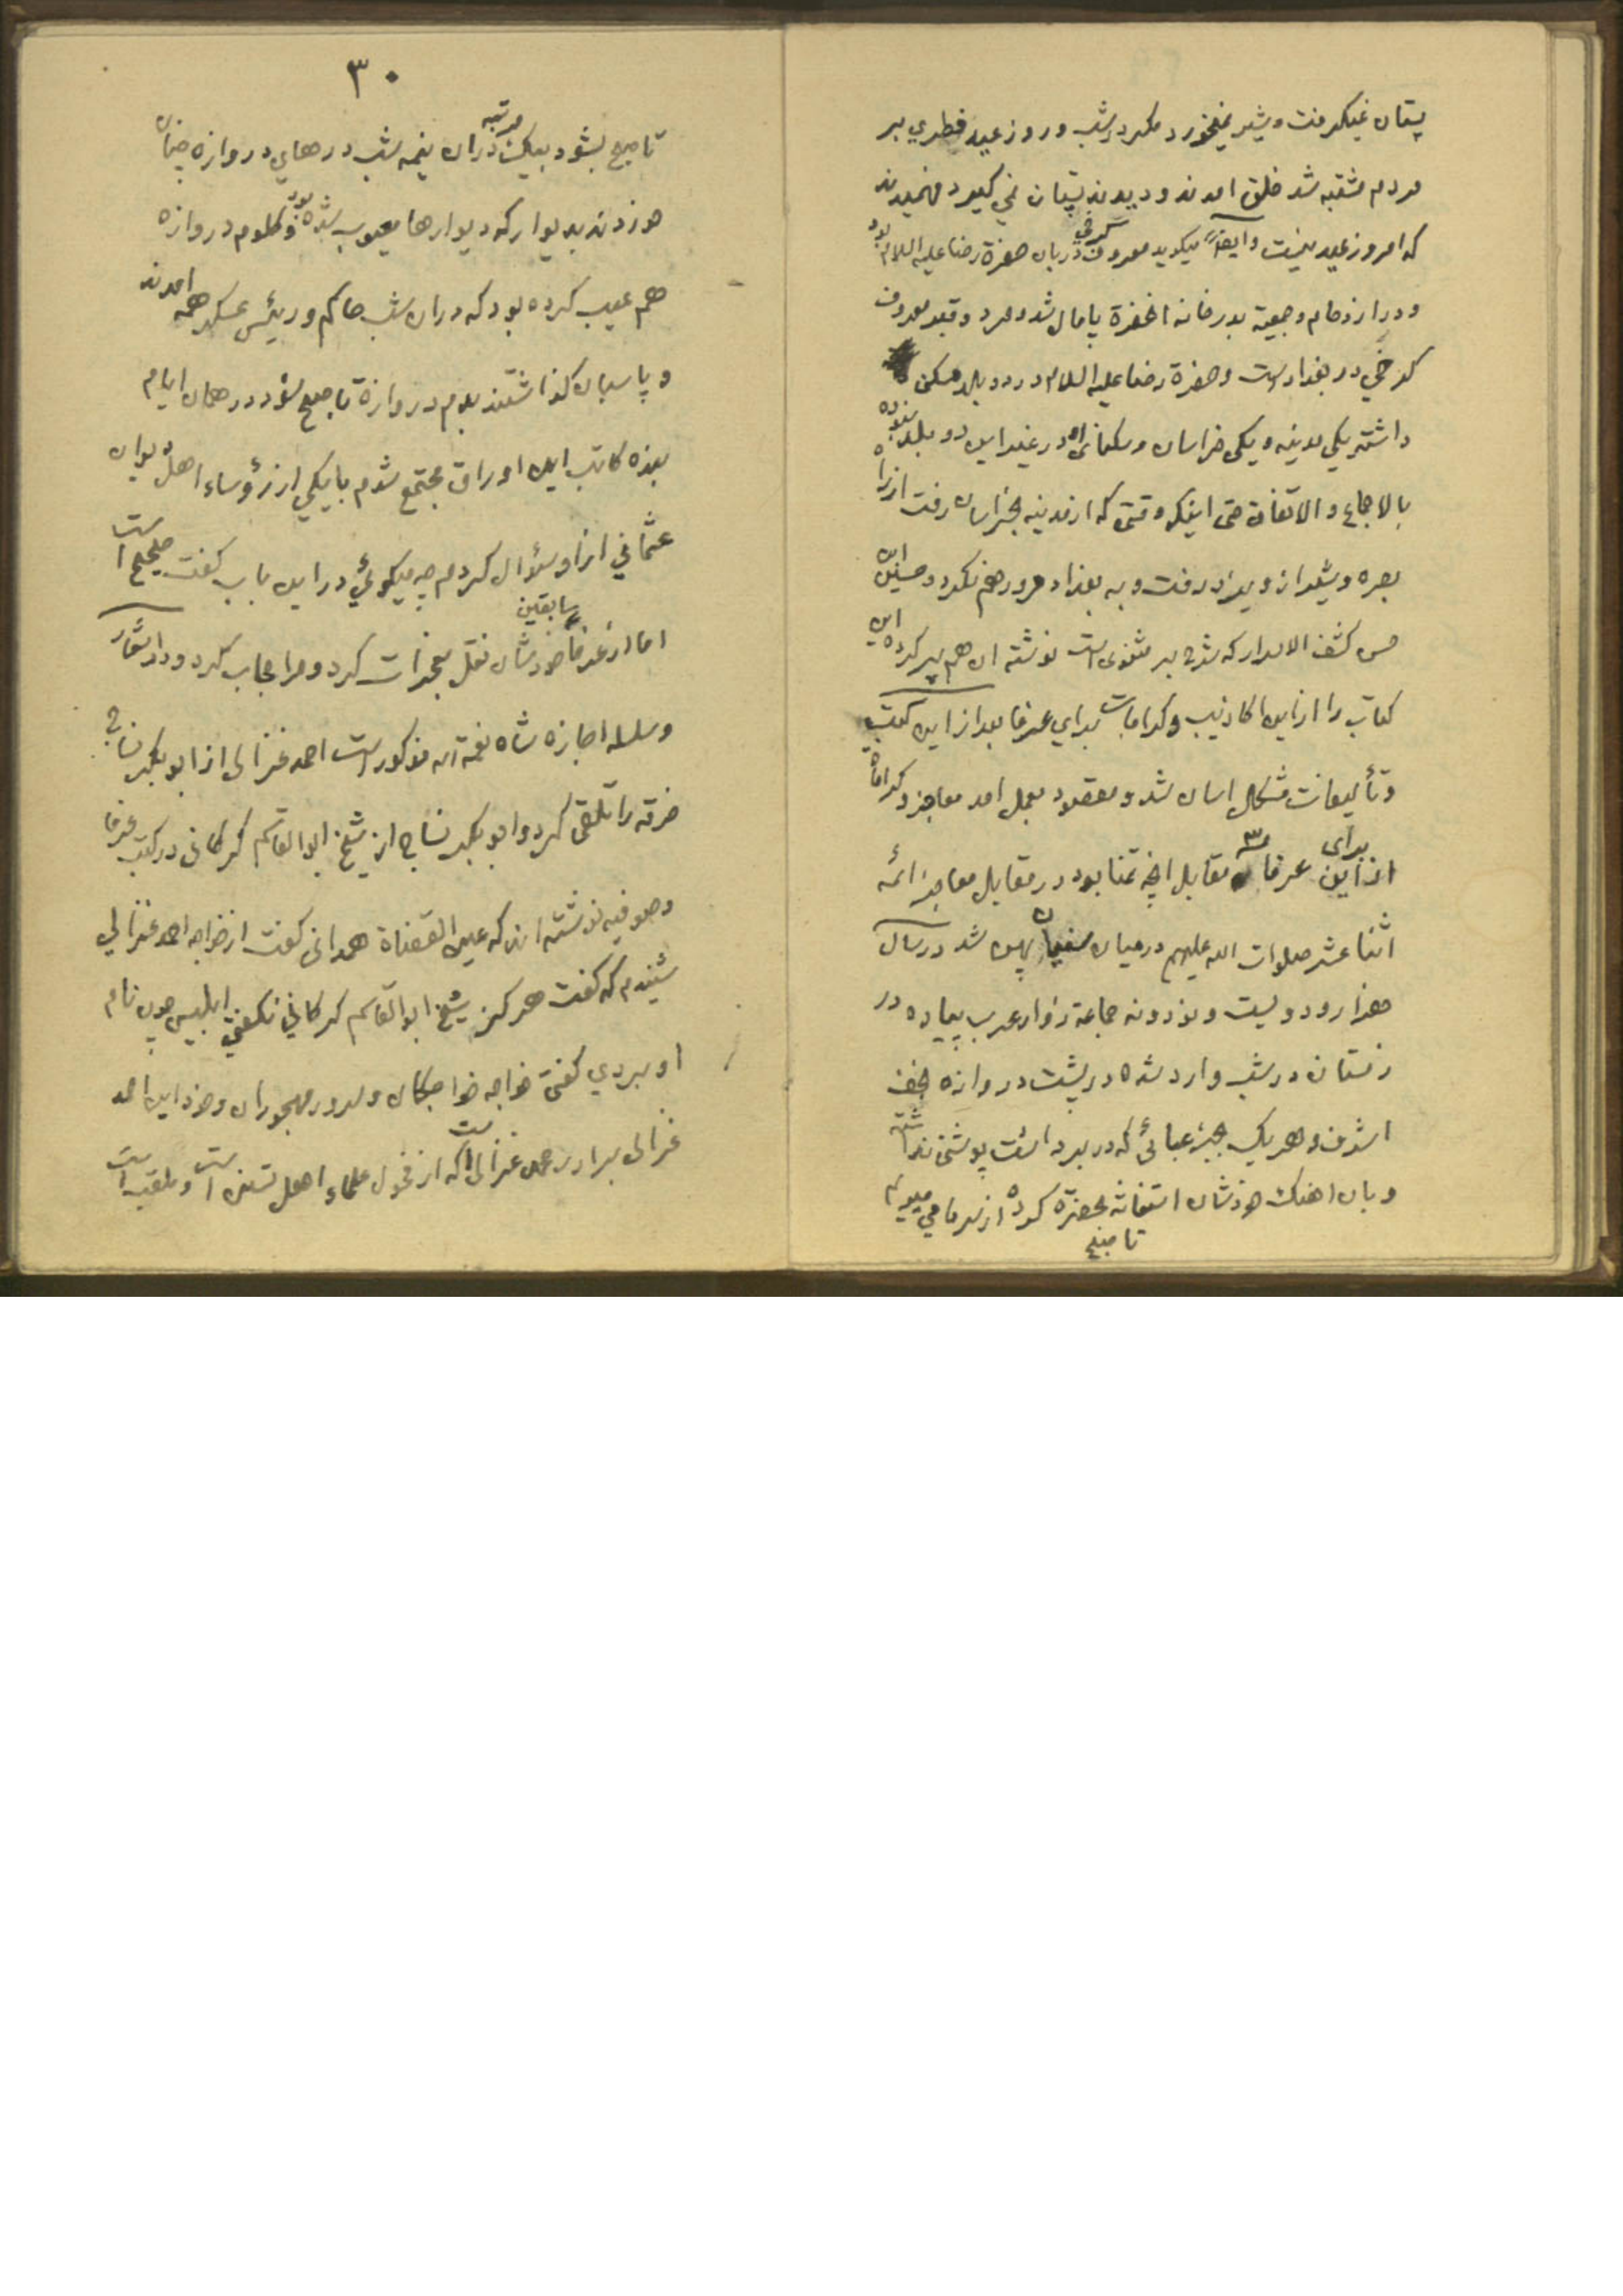 پستان نمیگرفت و شیر نمیخورد مگر در شب و روز عید فطری بر
مردم مشتبه شد خلق امدند و دیدند پستان نمی گیرد فهمیدند
که امروز عید نیست وایضاً میگوید معروف کرخی دربان حضرة رضا علیه السلام بود
ودر ازدحام وجمعیة بدرخانه انحضرة پامال شد ومرد وقبر معروف
کرخي در بغداد است وحضرة رضا علیه السلام در دو بلد مسکن
داشته یکی مدینه ویکی خراسان وسکنای او در غیر این دو بلد نبوده
بالاجماع والاتفاق حتی اینکه وقتی که از مدینه بخراسان رفت از راه
بصره وشیراز ویزد رفت وبه بغداد مرور هم نکرد وحسین ابن
حسن کشف الاسرار که شرح بر مثنوی است نوشته ان هم پر کرده این
کتاب را از این اکاذیب وکرامات برای عرفا بعد از این کتب
وتألیفات مشکل اسان شد ومقصود بعمل امد معاجز وکراماة
از این برای عرفا مقابل انچه تمنا بود در مقابل معاجز ائمه
اثنا عشر صلوات الله علیهم در میان سنیان پهن شد در سال
هزار و دویست و نود و نه جماعة زوار عرب پیاده در
زمستان در شب وارد شده در پشت دروازه نجف
اشرف و هر یک بجز عبائی که در بر داشت پوششی نداشته
وبان اهنگ خودشان استغاثه بحضرة کرده از سرما می میریم
تا صبح
۳۰
تا صبح بشود بیک مرتبه در ان نیمه شب درهای دروازه چنان
هم زدند بدیوار که دیوارها معیوب شده بود و کلوم دروازه
هم عیب کرده بود که در ان شب حاکم ورئیس عسکر همه امدند
و پاسبان گذاشتند بدم دروازة تا صبح شود در همان ایام
بنده کاتب این اوراق مجتمع شدم با یکی از رؤساء اهل دیوان
عثماني از او سؤال کردم چه میگوئي در این باب گفت صحیح است
اما از عرفا سابقین خودشان نقل معجزات کرد ومرا مجاب کرد ودر اشعار
وسلسله اجازه شاه نعمة الله مذکور است احمد غزالی از ابو بکر نساج
خرقه را تلقی کرد وابو بکر نساج از شیخ ابو القاسم کرکانی در کتب عرفا
وصوفیه نوشته اند که عین القضاة همدانی گفت از خواجه احمد غزالی
شنیدم که گفت هرگز شیخ ابو القاسم کرکاني نگفتي ابلیس چون نام
او بردي گفتی خواجه خواجگان وسرور مهجوران وخود این احمد
غزالی برادر محمد غزالی است که از فحول علماء اهل تسنن است وملقب است